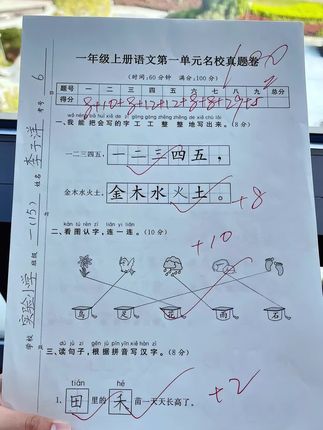 一年级上册语文第一单元名校真题卷
100
(时间:60分钟 满分:100分)
题号 一 二 三 四 五 六 七 八 九 总分
得分 8+10+8+12+12+8+8+29+5
一、我能把会写的字工工整整地写出来。(8分)
一二三四五, 一二三四五,
金木水火土。 金木水火土。
+8
kàn tú rèn zì lián yi lián
二、看图认字,连一连。(10分)
+10
鸟 足 花 雨 石
dú jù zi gēn jù pīn yīn xiě hàn zì
三、读句子,根据拼音写汉字。(8分)
tián hé
1. 田里的禾苗一天天长高了。
+2
学校 实验小学 班级 一(15) 姓名 李子洋 考号 6